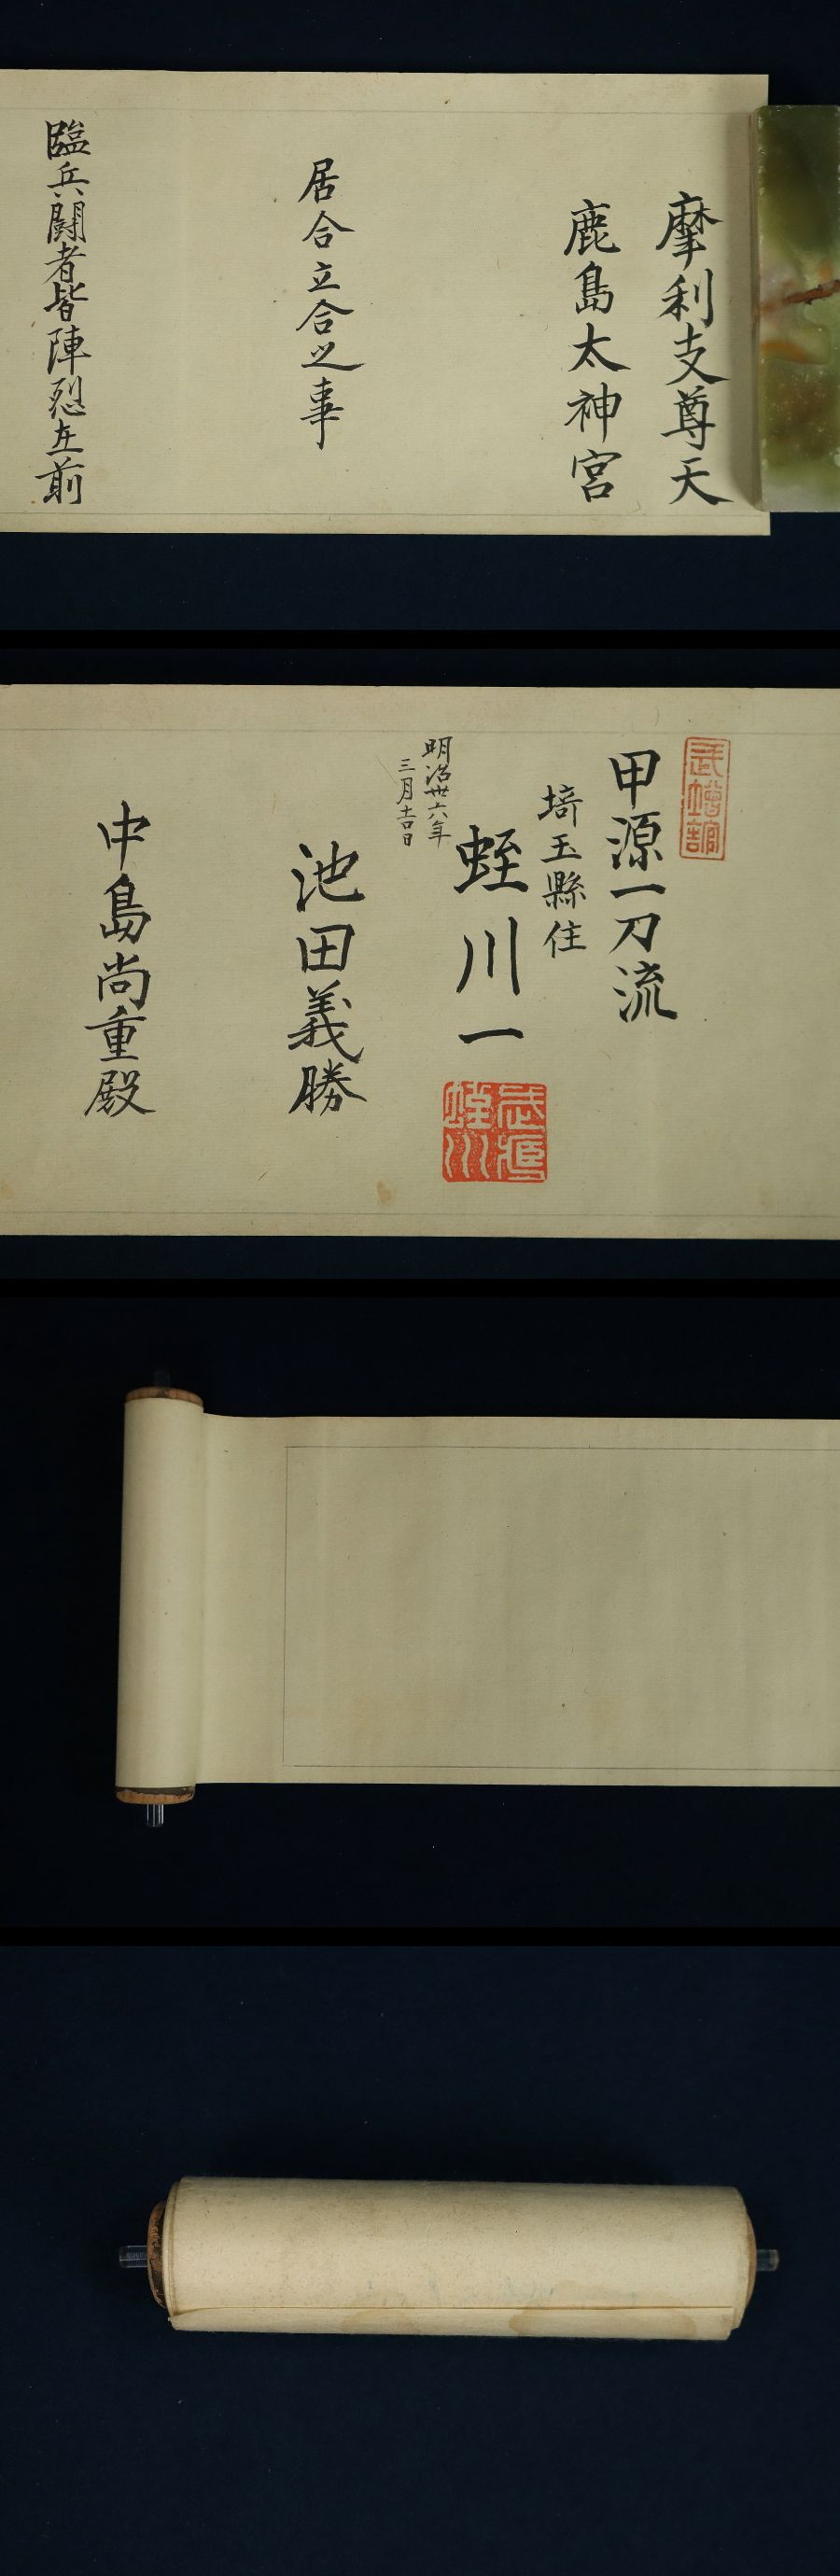 摩利支尊天
鹿島太神宮
居合立合之事
臨兵闘者皆陣烈在前
甲源一刀流
埼玉縣住
明治丗六年
三月吉日
蛭川一
池田義勝
中島尚重殿